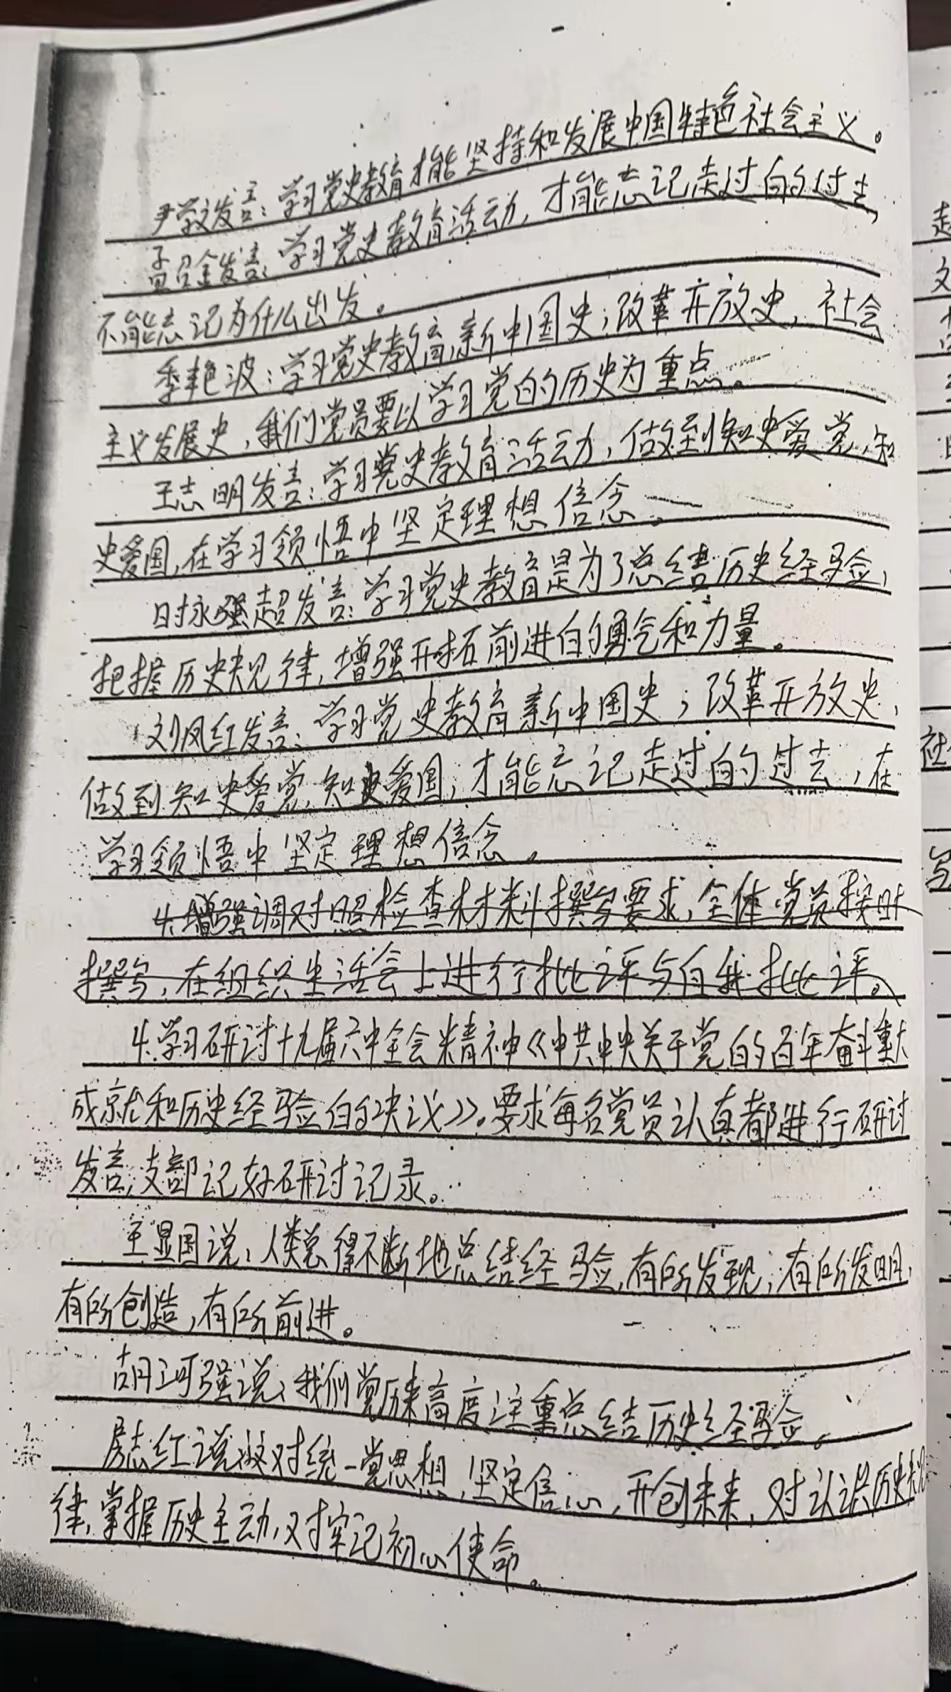 尹学文发言：学习党史教育才能坚持和发展中国特色社会主义。
孟召金发言：学习党史教育活动，才能忘记走过的过去，
不能忘记为什么出发。
季艳波：学习党史教育，新中国史；改革开放史，社会
主义发展史，我们党员要以学习党的历史为重点。
王志明发言：学习党史教育活动，做到知史爱党，知
史爱国，在学习领悟中坚定理想信念。
时永强超发言：学习党史教育是为了总结历史经验，
把握历史规律，增强开拓前进的勇气和力量。
刘凤红发言：学习党史教育新中国史；改革开放史，
做到知史爱党，知史爱国，才能忘记走过的过去，在
学习领悟中坚定理想信念。
4.增强调对照检查材料撰写要求，全体党员按时
撰写，在组织生活会上进行批评与自我批评。
4.学习研讨十九届六中全会精神《中共中央关于党的百年奋斗重大
成就和历史经验的决议》。要求每名党员认真都进行研讨
发言，支部记好研讨记录。
王显国说，人类总得不断地总结经验，有所发现，有所发明，
有所创造，有所前进。
胡河强说，我们党历来高度注重总结历史经验。
房志红说，对统一党思想，坚定信心，开创未来，对认识历史规
律，掌握历史主动，对牢记初心使命。
社